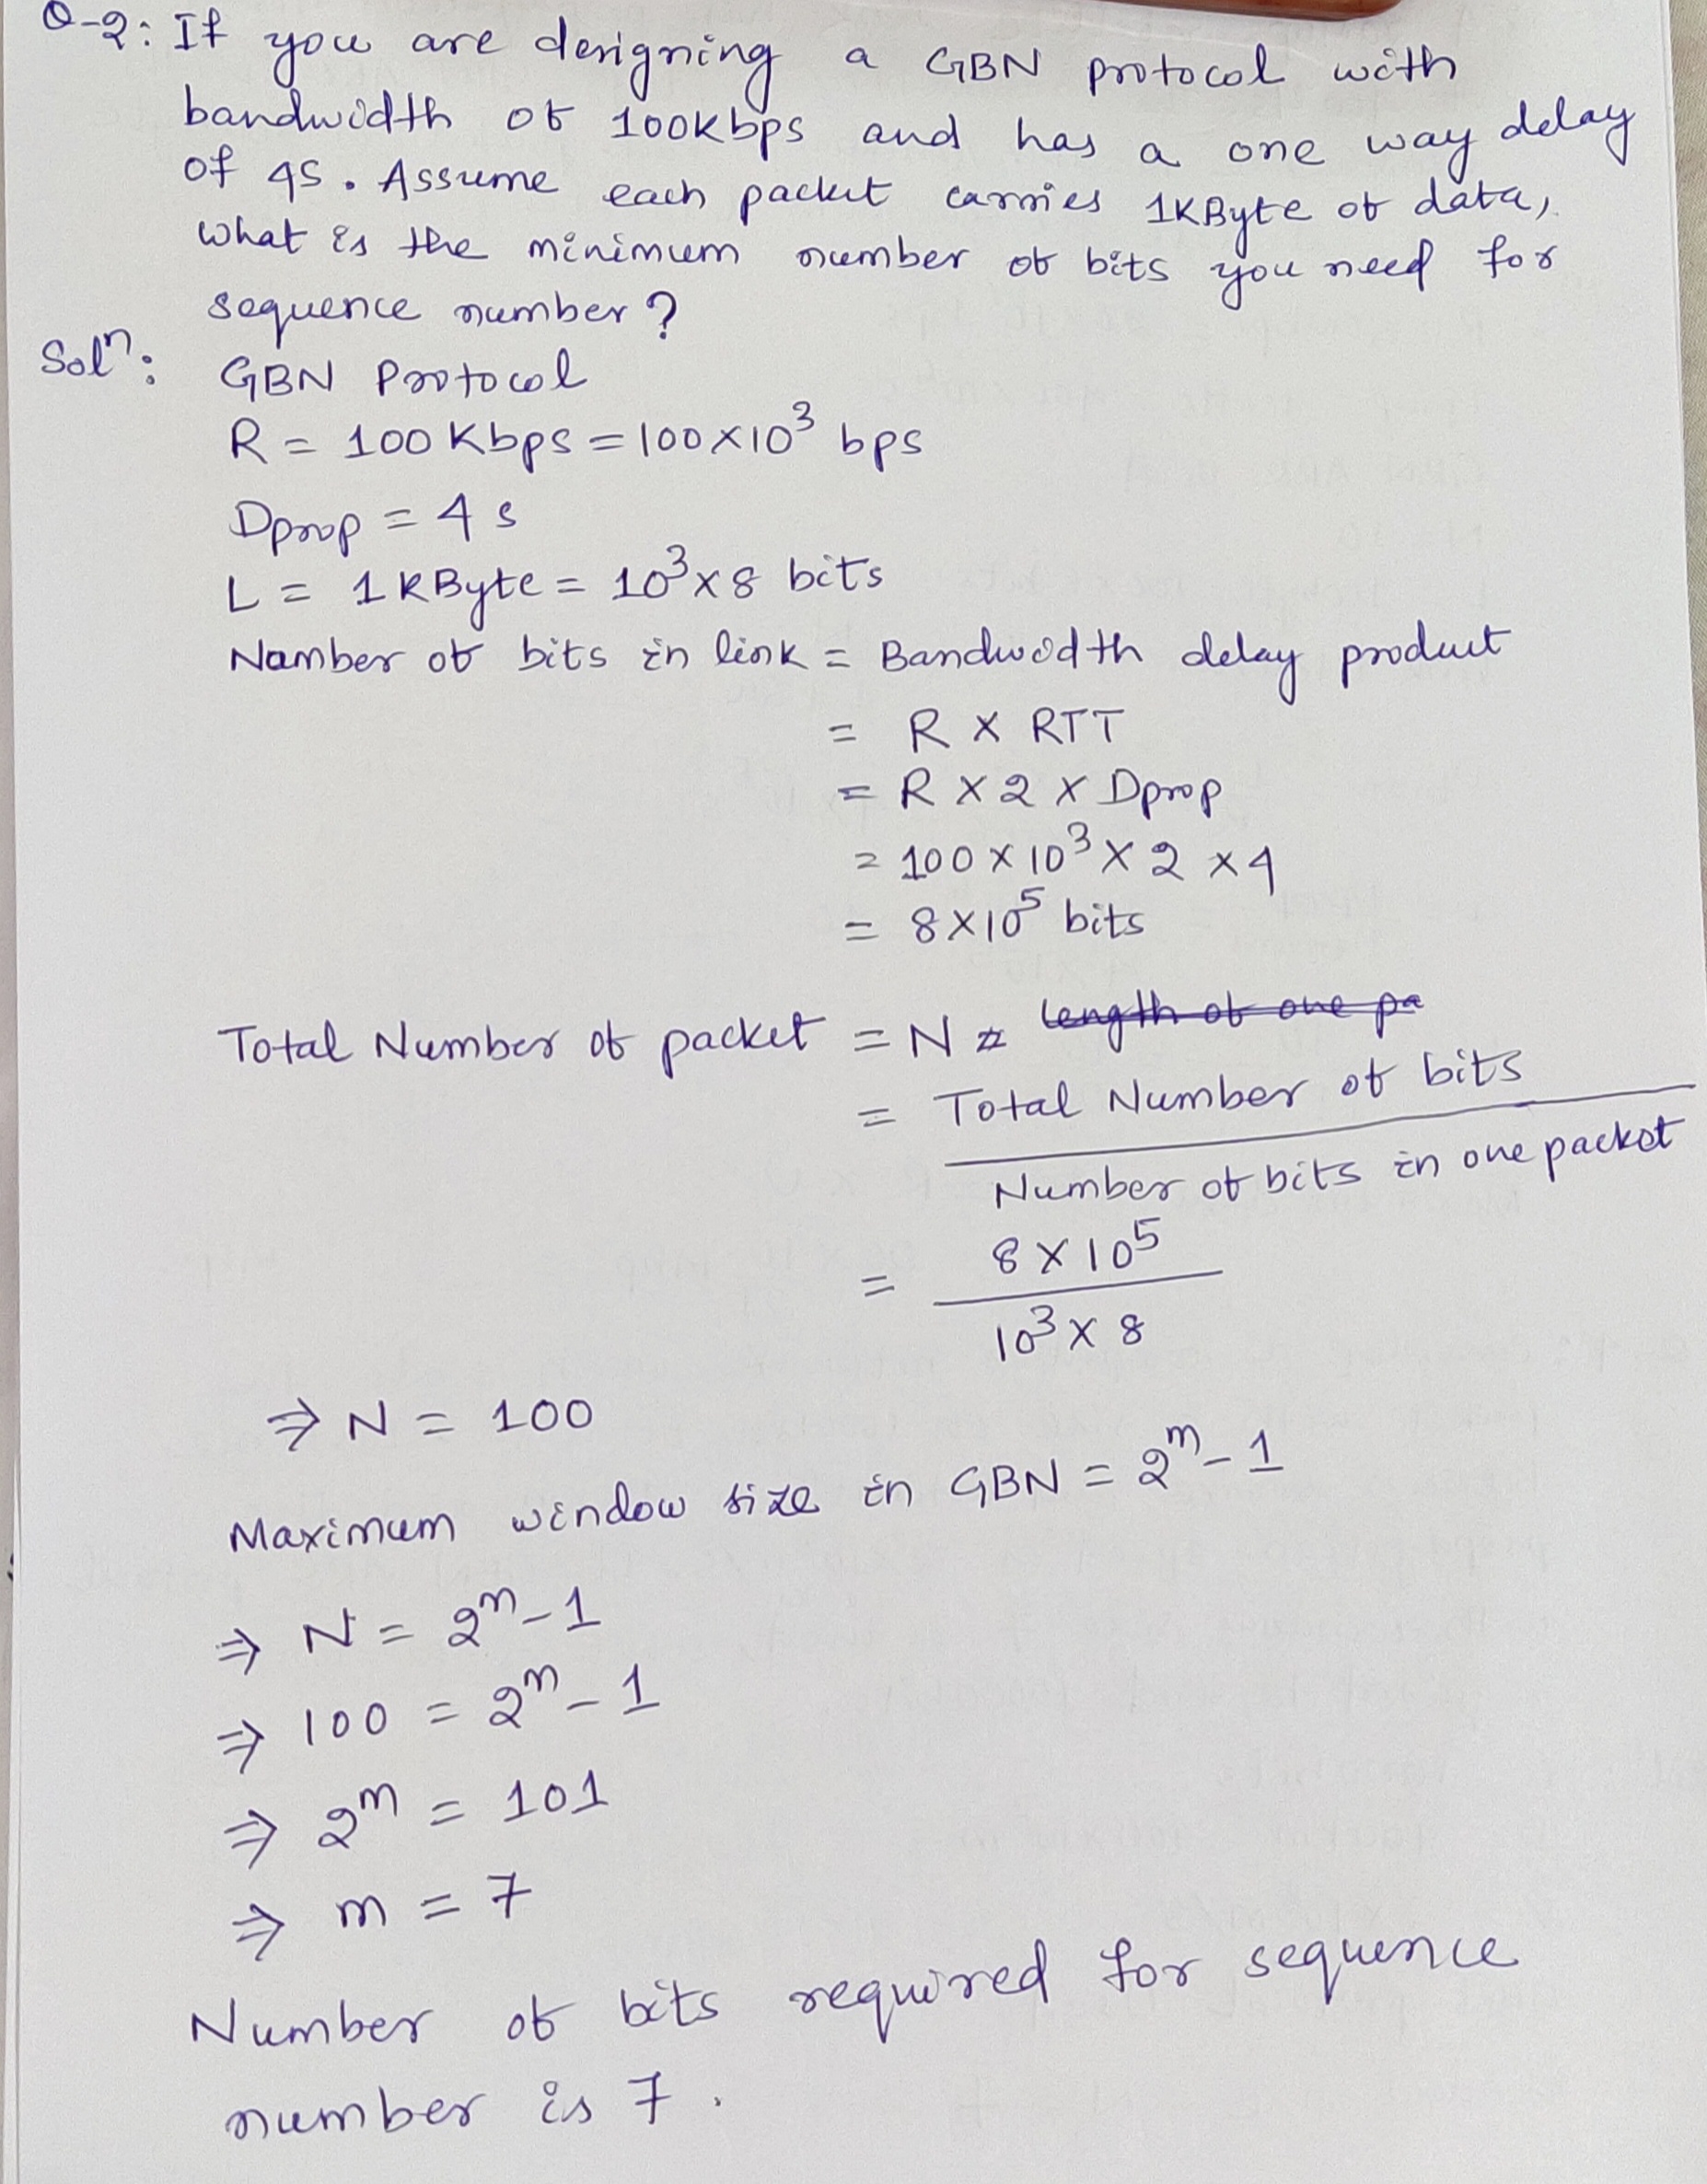 Q-2: If you are designing a GBN protocol with
bandwidth of 100Kbps and has a one way delay
of 4S. Assume each packet carries 1KByte of data,
what is the minimum number of bits you need for
sequence number?
Solⁿ: GBN Protocol
R = 100 Kbps = 100×10³ bps
Dprop = 4 s
L = 1 KByte = 10³×8 bits
Number of bits in link = Bandwidth delay product
= R × RTT
= R × 2 × Dprop
= 100 × 10³ × 2 × 4
= 8×10⁵ bits
Total Number of packet = N = length of one pa
= Total Number of bits
Number of bits in one packet
= 8 × 10⁵
10³ × 8
⇒ N = 100
Maximum window size in GBN = 2ᵐ - 1
⇒ N = 2ᵐ - 1
⇒ 100 = 2ᵐ - 1
⇒ 2ᵐ = 101
⇒ m = 7
Number of bits required for sequence
number is 7.